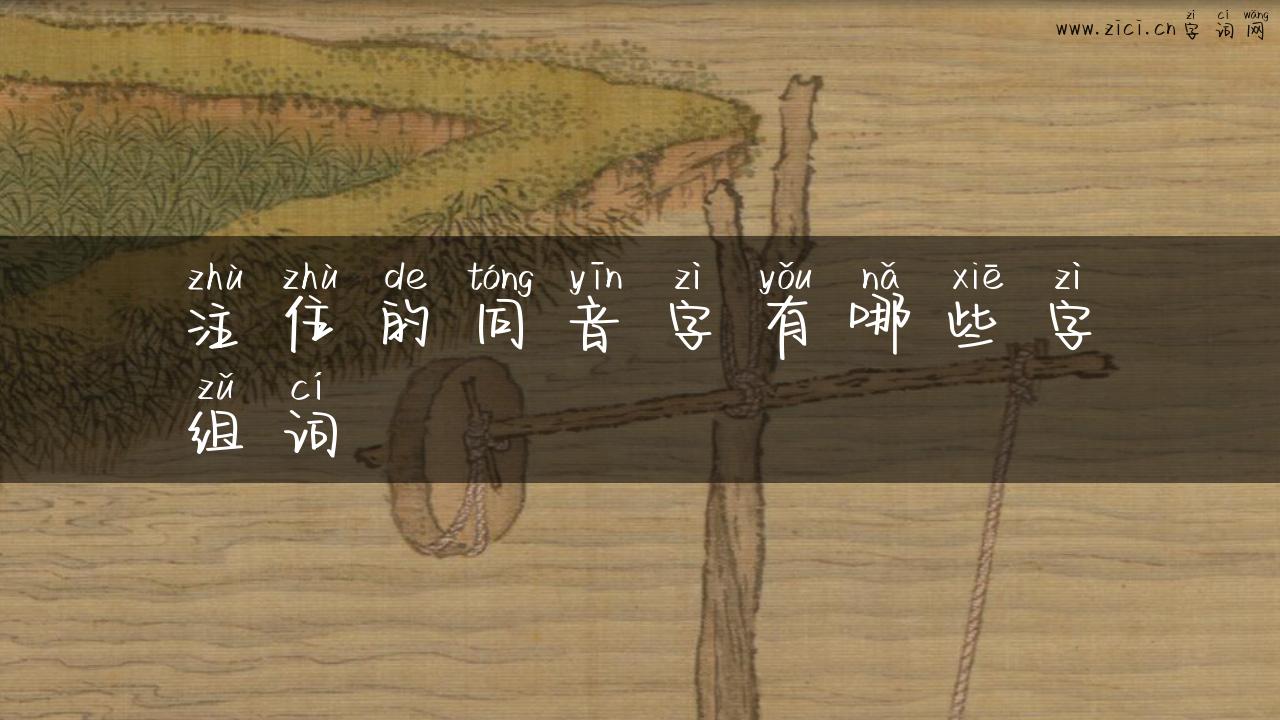 zì cí wǎng
www.zici.cn 字词网
zhù zhù de tóng yīn zì yǒu nǎ xiē zì
注住的同音字有哪些字
zǔ cí
组词